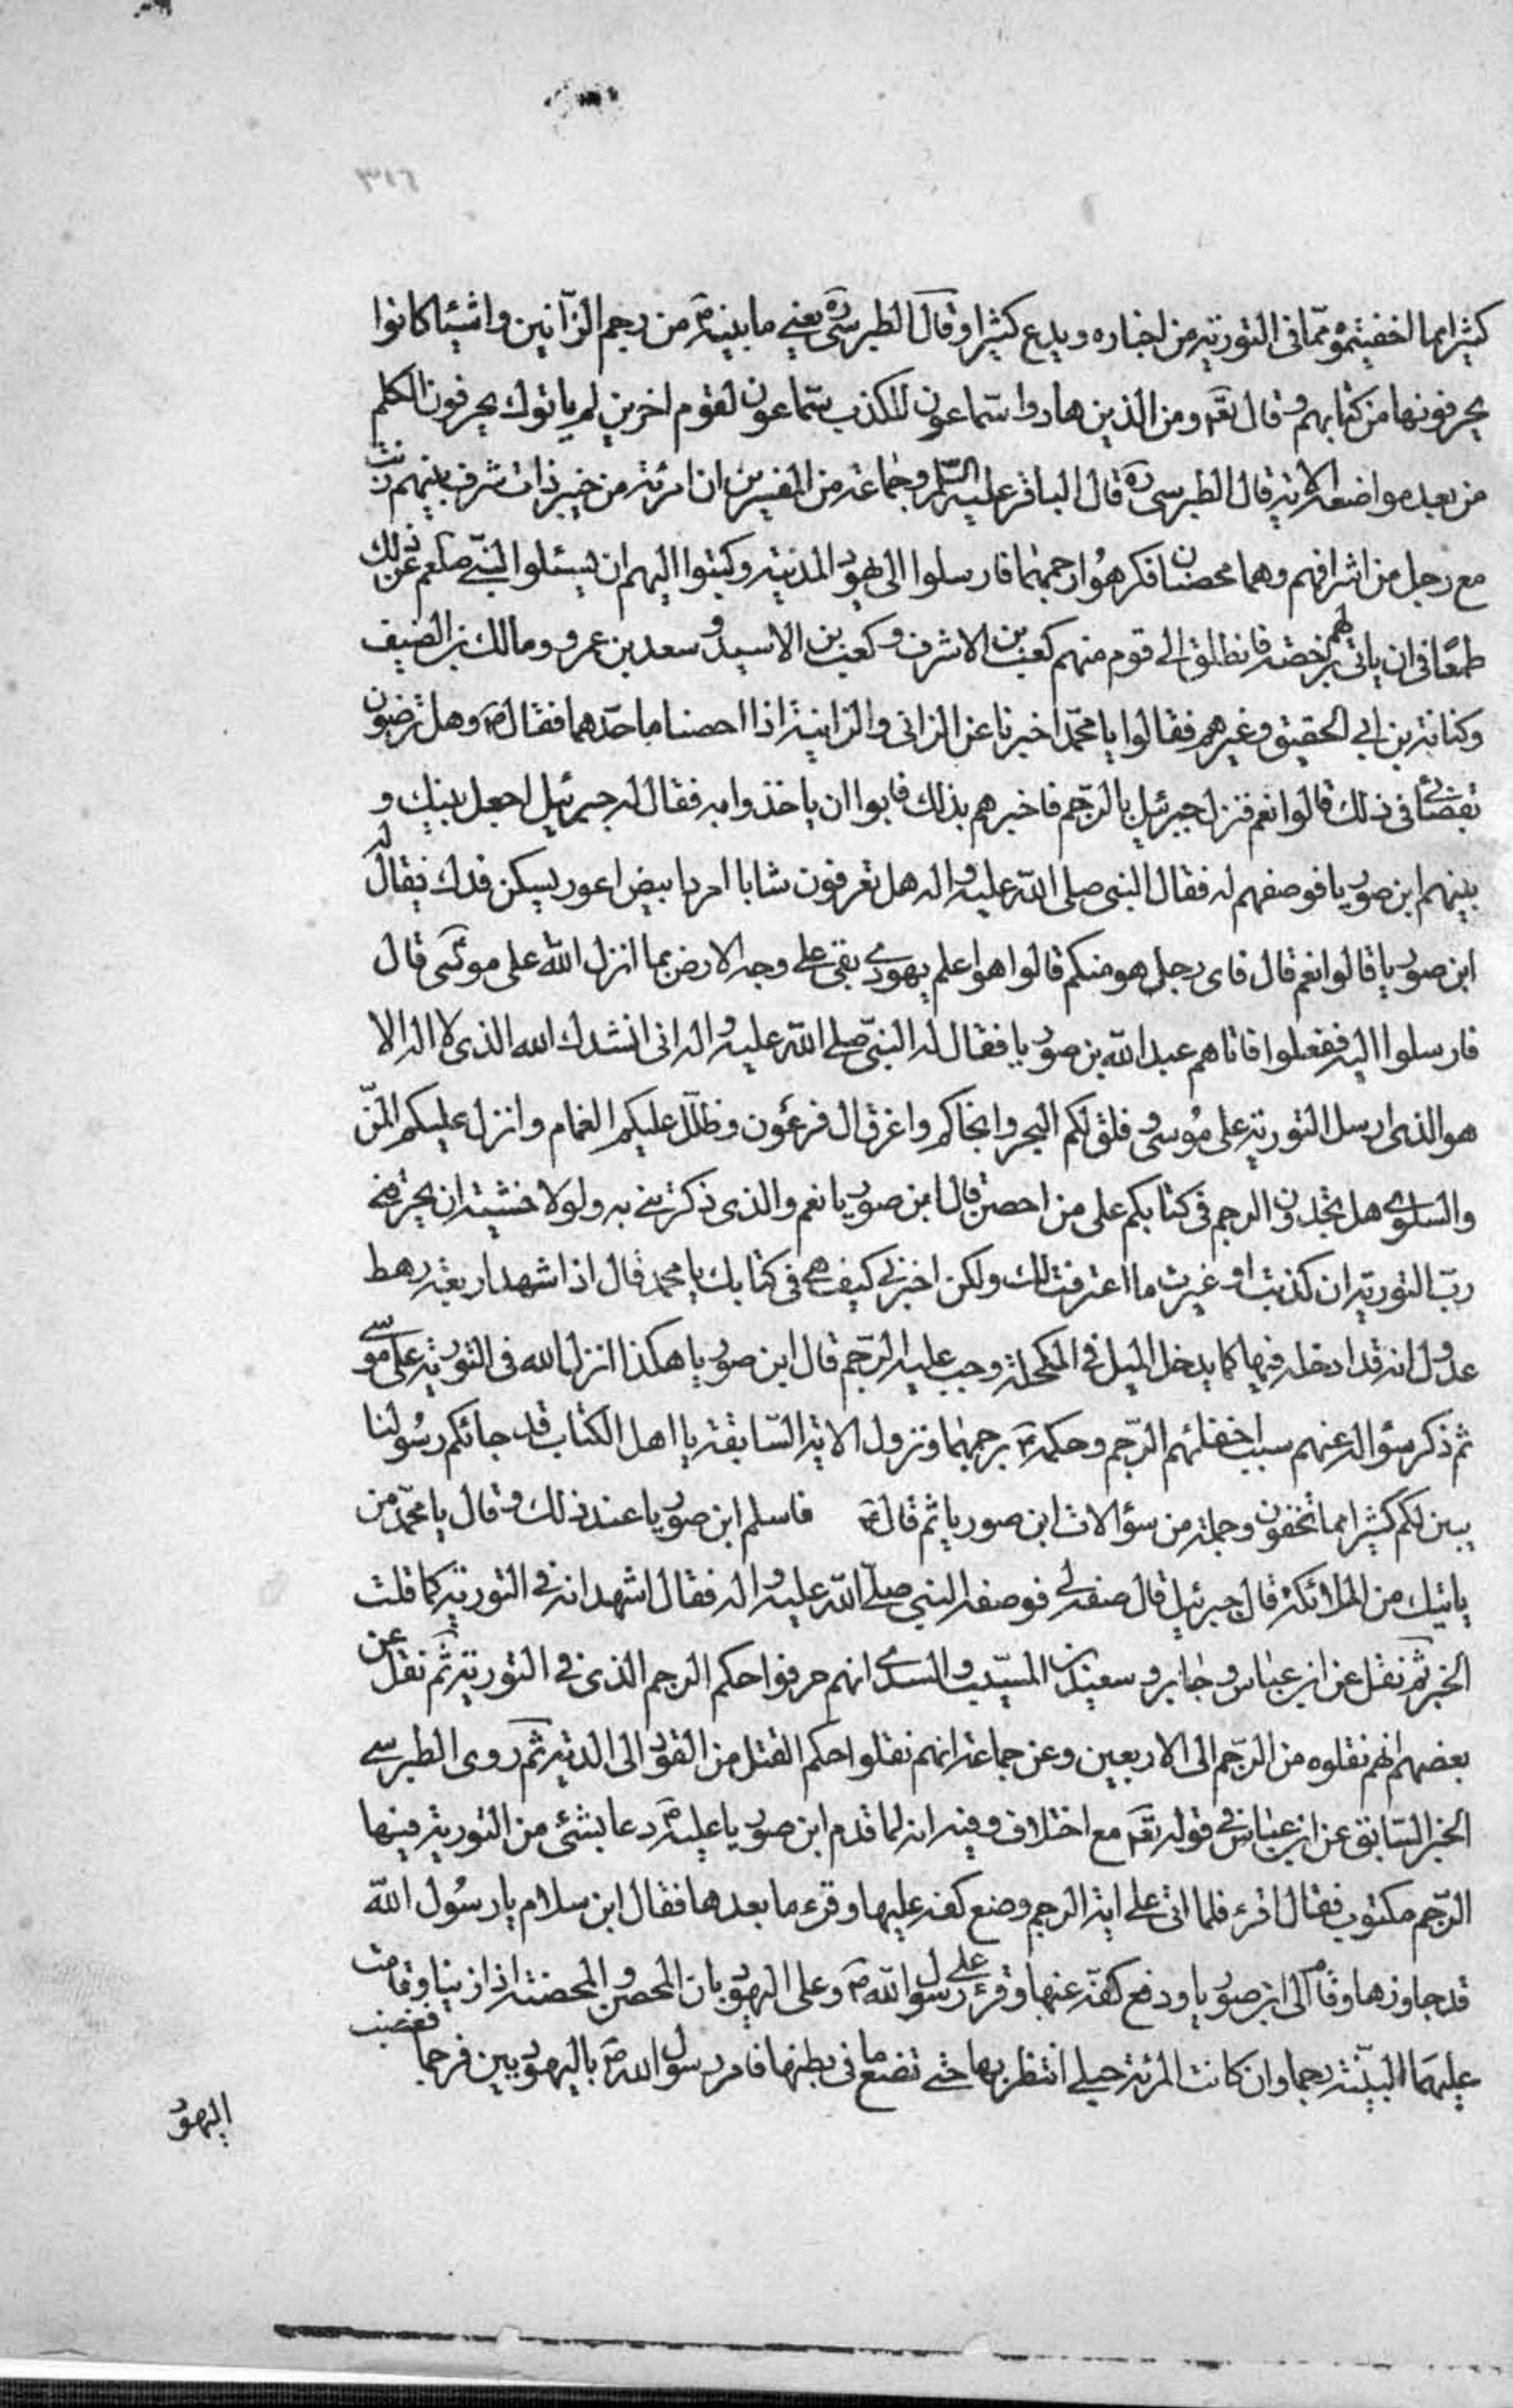 ٣١٦
كثيرا مما اخفيتموه مما فى التورية من اخباره ويدع كثيرا وقال الطبرسى ره يعنى ما بينه ص من رجم الزانين واشياء كانوا
يحرفونها من كتابهم وقال تعم ومن الذين هادوا سماعون للكذب سماعون لقوم اخرين لم ياتوك يحرفون الكلم
من بعد مواضعه الاية قال الطبرسى ره قال الباقر عليه السلم وجماعة من المفسرين ان امرئة من خيبر ذات شرف بينهم زنت
مع رجل من اشرافهم وهما محصنان فكرهوا رجمهما فارسلوا الى يهود المدينة وكتبوا اليهم ان يسئلوا النبى صلعم عن ذلك
طمعا فى ان ياتى لهم برخصة فانطلق الى قوم منهم كعب بن الاشرف وكعب بن الاسيد وسعد بن عمرو ومالك بن الضيف
وكنانة بن ابى الحقيق وغيرهم فقالوا يا محمد اخبرنا عن الزانى والزانية اذا احصنا ما حدهما فقال ص وهل ترضون
بقضائى فى ذلك قالوا نعم فنزل جبرئيل بالرجم فاخبرهم بذلك فابوا ان ياخذوا به فقال له جبرئيل اجعل بينك و
بينهم ابن صوريا فوصفهم له فقال النبى صلى الله عليه واله هل تعرفون شابا امردا بيض اعور يسكن فدك يقال له
ابن صوريا قالوا نعم قال فاى رجل هو منكم قالوا هو اعلم يهودى بقى على وجه الارض بما انزل الله على موسى قال
فارسلوا اليه ففعلوا فاتاهم عبد الله بن صوريا فقال له النبى صلى الله عليه واله انى انشدك الله الذى لا اله الا
هو الذى ارسل التورية على موسى وفلق لكم البحر وانجاكم واغرق ال فرعون وظلل عليكم الغمام وانزل عليكم المن
والسلوى هل تجدون الرجم فى كتابكم على من احصن قال ابن صوريا نعم والذى ذكرتنى به ولولا خشية ان يحرقنى
رب التورية ان كذبت او غيرت ما اعترفت لك ولكن اخبرنى كيف هى فى كتابك يا محمد قال اذا شهد اربعة رهط
عدول انه قد ادخله فيها كما يدخل الميل فى المكحلة وجب عليه الرجم قال ابن صوريا هكذا انزل الله فى التورية على موسى
ثم ذكر سؤاله عنهم سبب اخفائهم الرجم وحكمه ص برجمهما ونزول الاية السابقة يا اهل الكتاب قد جائكم رسولنا
يبين لكم كثيرا مما تخفون وجملة من سؤالات ابن صوريا ثم قال ره فاسلم ابن صوريا عند ذلك وقال يا محمد من
ياتيك من الملائكة قال جبرئيل قال صفه لى فوصفه النبى صلى الله عليه واله فقال اشهد انه فى التورية كما قلت
الخبر ثم نقل عن ابن عباس وجابر وسعيد بن المسيب والسدى انهم حرفوا حكم الرجم الذى فى التورية ثم نقل عن
بعضهم انهم نقلوه من الرجم الى الاربعين وعن جماعة انهم نقلوا حكم القتل من القود الى الدية ثم روى الطبرسى
الخبر السابق عن ابن عباس فى قوله تعم مع اختلاف وفيه انه لما قدم ابن صوريا عليه ص دعا بشئ من التورية فيها
الرجم مكتوب فقال اقرء فلما اتى على اية الرجم وضع كفه عليها وقرء ما بعدها فقال ابن سلام يا رسول الله
قد جاوزها وقام الى ابن صوريا ورفع كفه عنها وقرء على رسول الله ص وعلى اليهود بان المحصن والمحصنة اذا زنيا وقامت
عليهما البينة رجما وان كانت المرئة حبلى انتظر بها حتى تضع ما فى بطنها فامر رسول الله ص باليهوديين فرجما فغضب
اليهود